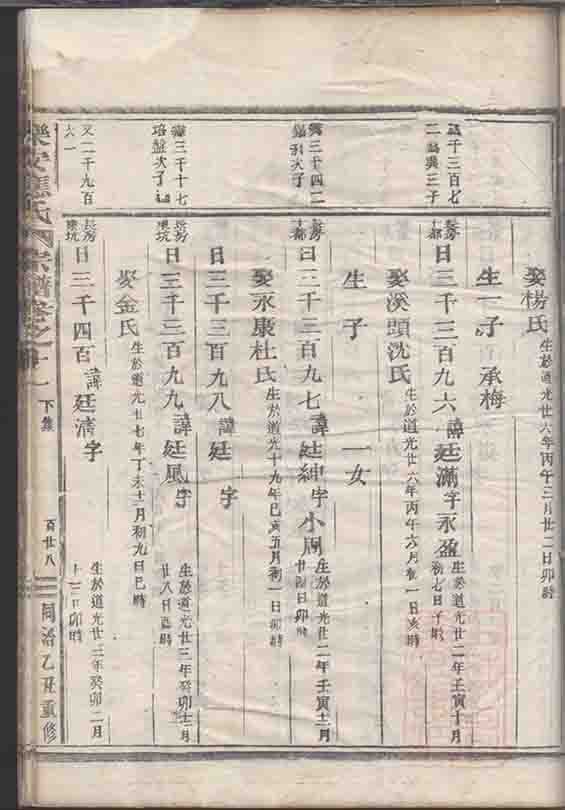 娶楊氏 生於道光廿六年丙午三月廿二日卯時
生一子 承梅
千三百七
二 興三子
長房
十都
日三千三百九六 諱廷滿 字永盈 生於道光廿二年壬寅十月初七日子時
娶溪頭沈氏 生於道光廿六年丙午六月初一日亥時
生子 一女
三千四二
次子
長房
十都
日三千三百九七 諱廷紳 字小周 生於道光廿二年壬寅十二月廿日卯時
娶永康杜氏 生於道光十九年己亥五月初一日卯時
日三千三百九八 諱廷 字
三千十七
珞盤次子
長房
坑
日三千三百九九 諱廷風 字 生於道光廿三年癸卯十二月廿八日酉時
娶金氏 生於道光廿七年丁未十二月初九日巳時
又二千九百
大一
長房
坑
日三千四百 諱廷清 字 生於道光廿三年癸卯二月十二日卯時
樂安 氏 宗譜卷之十一
下集
百廿八
同治乙丑重修